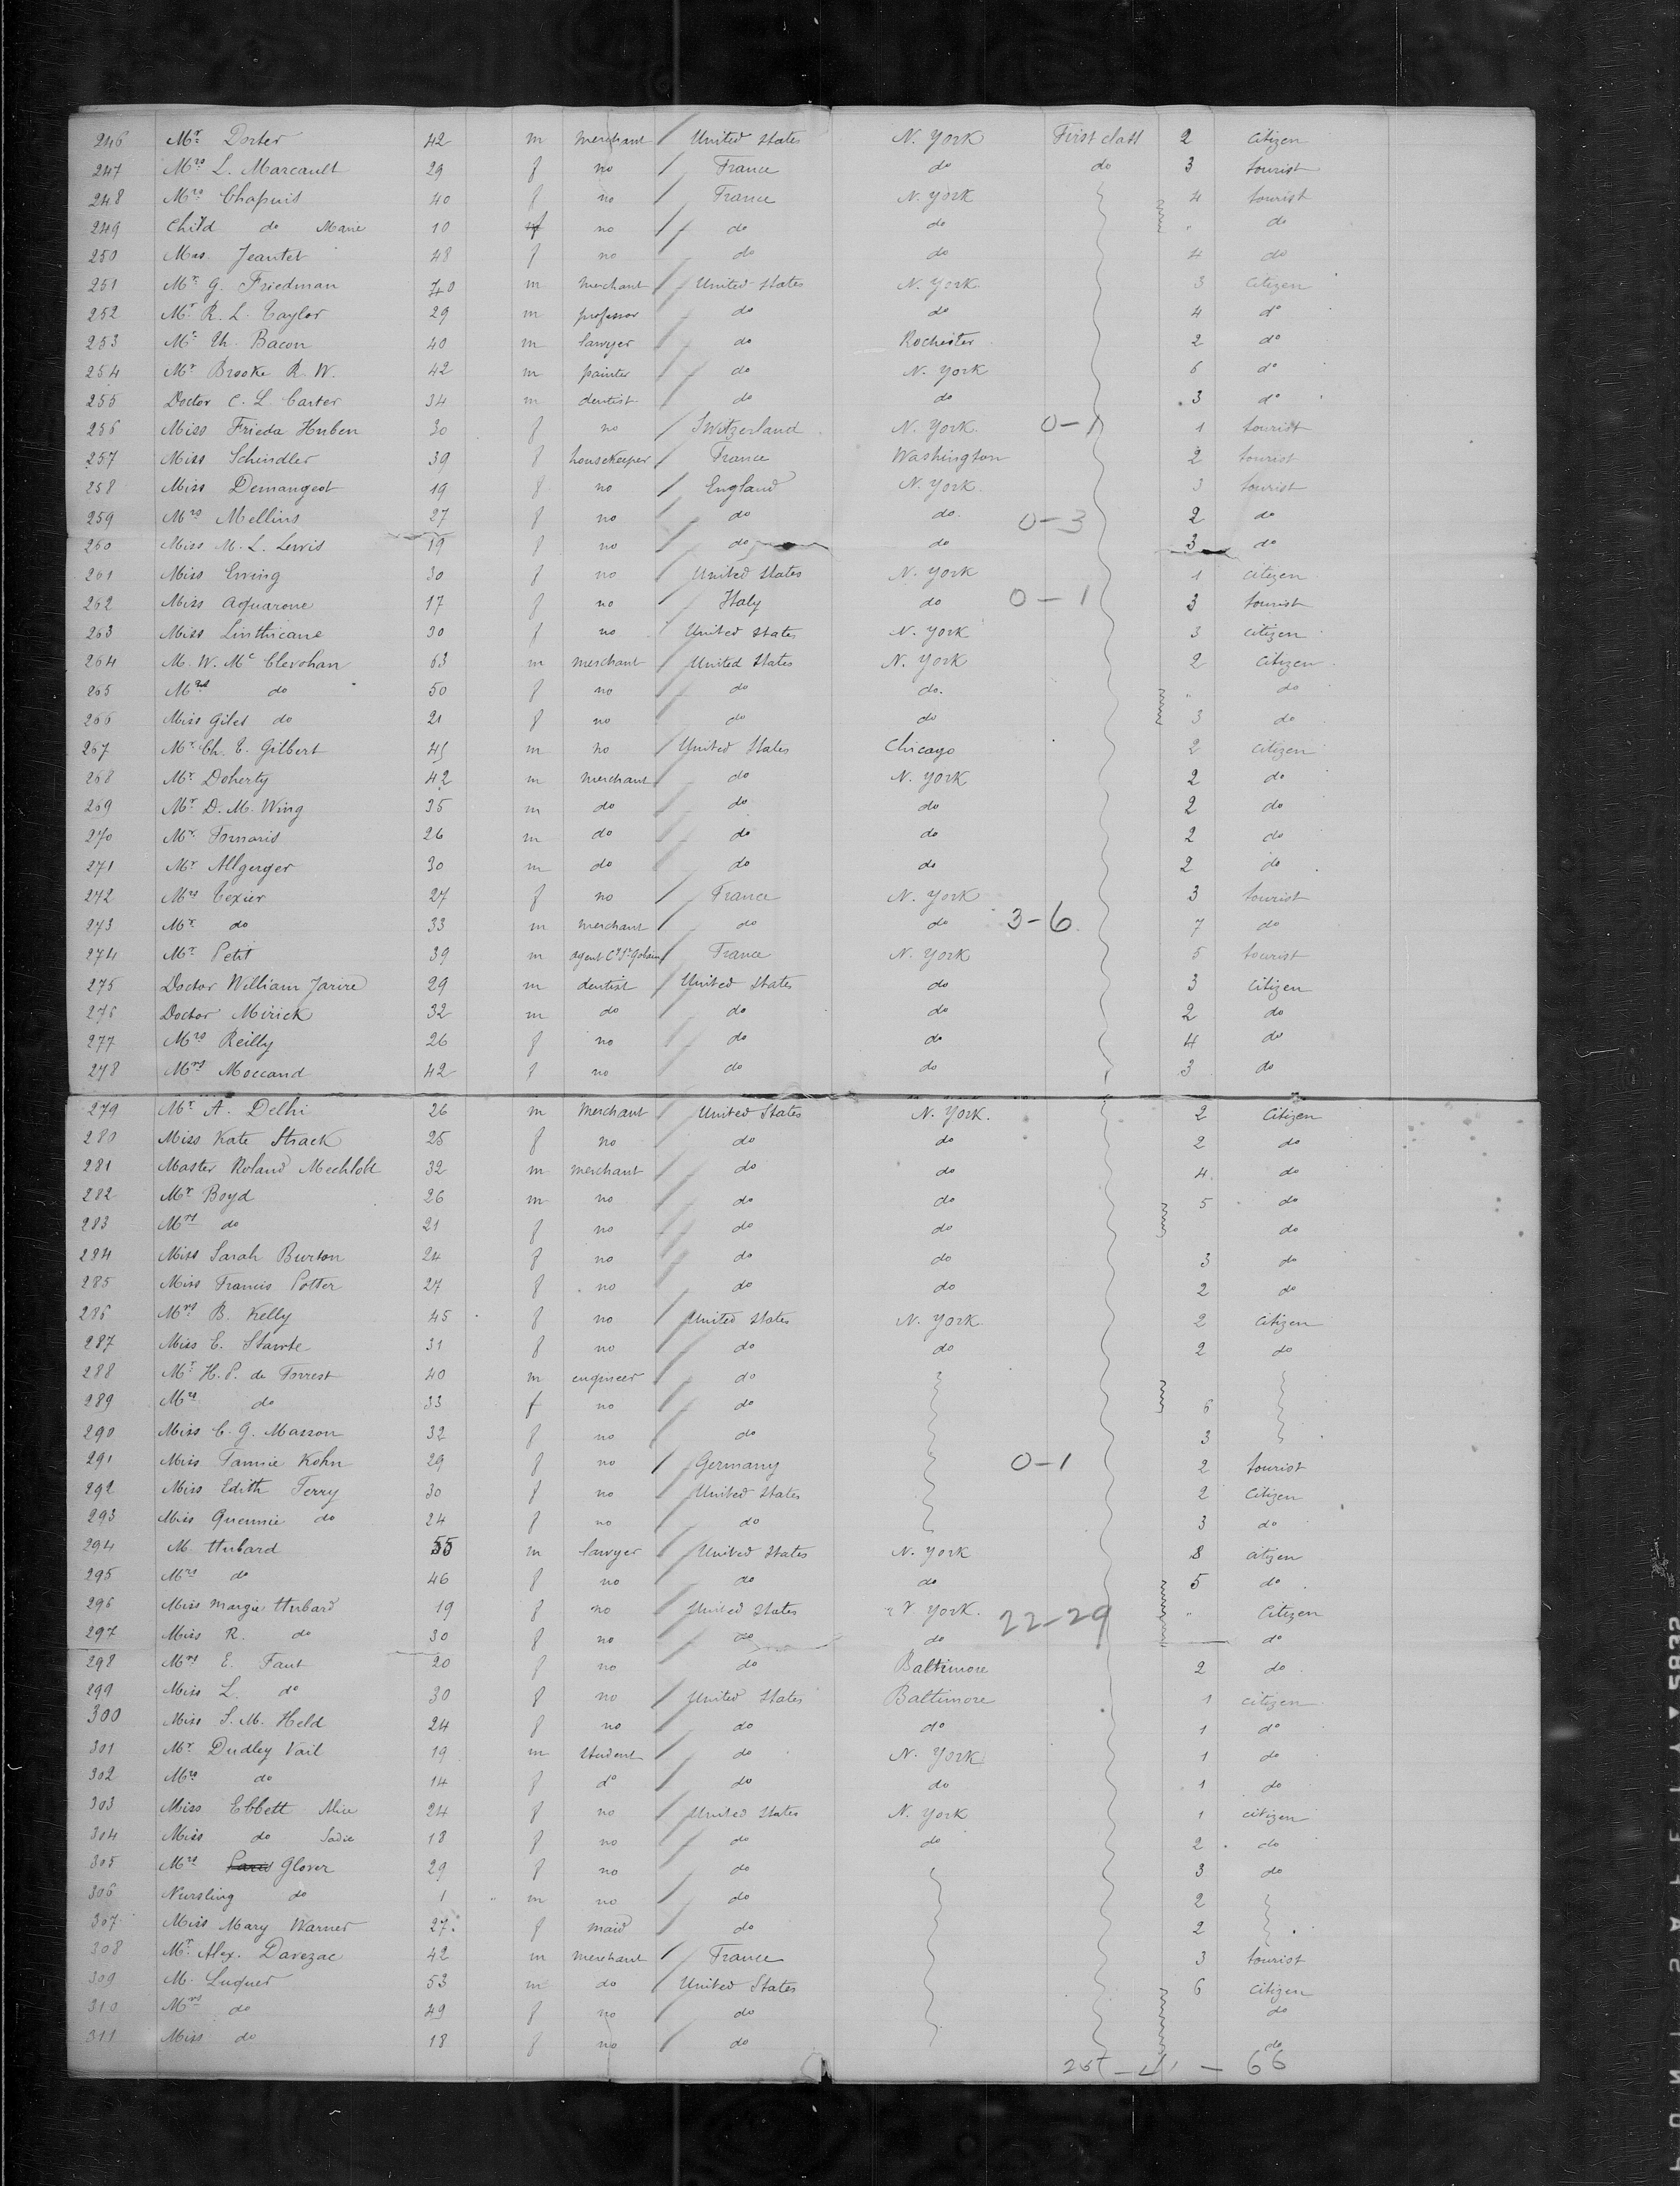 246 Mr. Dorter 42 m merchant United States N. York First class 2 citizen
247 Mrs L. Marcault 29 f no France do do 3 tourist
248 Mrs Chapuis 40 f no France N. York 4 tourist
249 Child do Marie 10 f no do do " do
250 Mas. Jeantet 48 f no do do 4 do
251 Mr. G. Friedman 40 m merchant United States N. York 3 citizen
252 Mr R. L. Taylor 29 m professor do do 4 do
253 Mr. Bacon 40 m lawyer do Rochester 2 do
254 Mr Brooke R. W. 42 m painter do N. York 6 do
255 Doctor C. L. Carter 34 m dentist do do 3 do
256 Miss Frieda Huben 30 f no Switzerland N. York. 0-1 1 tourist
257 Miss Schindler 39 f housekeeper France Washington 2 tourist
258 Miss Demangeot 19 f no England N. York 3 tourist
259 Mrs Mellins 27 f no do do. 0-3 2 do
260 Miss M. L. Lewis 19 f no do do 3 do
261 Miss Ewing 30 f no United States N. York 1 citizen
262 Miss Aquarone 17 f no Italy do 0-1 3 tourist
263 Miss Linthicane 30 f no United States N. York 3 citizen
264 M. W. Mc Clevohan 63 m merchant United States N. York 2 citizen
265 Mrs do 50 f no do do. " do
266 Miss Gilet do 21 f no do do 3 do
267 Mr. Ch. E. Gilbert 45 m no United States Chicago 2 citizen
268 Mr. Doherty 42 m merchant do N. York 2 do
269 Mr. D. M. Wing 35 m do do do 2 do
270 Mr. 26 m do do do 2 do
271 Mr. Allgerger 30 m do do do 2 do
272 Mrs Texier 27 f no France N. York 3 tourist
273 Mr. do 33 m merchant do do 3-6 7 do
274 Mr. Petit 39 m agent Ce St Gobain France N. York 5 tourist
275 Doctor William Jarire 29 m dentist United States do 3 citizen
276 Doctor Mirick 32 m do do do 2 do
277 Mrs Reilly 26 f no do do 4 do
278 Mrs Moccand 42 f no do do 3 do
279 Mr. A. Delhi 26 m merchant United States N. York. 2 citizen
280 Miss Kate Strack 25 f no do do 2 do
281 Master Roland Mechlolt 32 m merchant do do 4. do
282 Mr. Boyd 26 m no do do 5 do
283 Mrs do 21 f no do do do
284 Miss Sarah Burton 24 f no do do 3 do
285 Miss Francis Potter 27 f no do do 2 do
286 Mrs B. Kelly 45 f no United States N. York. 2 citizen
287 Miss E. Stawte 31 f no do do 2 do
288 Mr. H. P. de Forrest 40 m engineer do
289 Mrs do 33 f no do 6
290 Miss C. G. Masson 32 f no do 3
291 Miss Fannie Kohn 29 f no Germany 0-1 2 tourist
292 Miss Edith Terry 30 f no United States 2 citizen
293 Miss Queennie do 24 f no do 3 do
294 M. Hubard 55 m lawyer United States N. York 8 citizen
295 Mrs do 46 f no do do 5 do
296 Miss Margie Hubard 19 f no United States N York. 22-29 " citizen
297 Miss R. do 30 f no do do do
298 Mrs E. Faut 20 f no do Baltimore 2 do
299 Miss L. do 30 f no United States Baltimore 1 citizen
300 Miss S. M. Held 24 f no do do 1 do
301 Mr Dudley Vail 19 m student do N. York 1 do
302 Mrs do 14 f do do do 1 do
303 Miss Ebbett Alice 24 f no United States N. York 1 citizen
304 Miss do Sadie 18 f no do do 2 do
305 Mrs Glover 29 f no do 3 do
306 Nursling do 1 " m no do 2
307 Miss Mary Warner 27. f maid do 2
308 Mr. Alex. Davezac 42 m merchant France 3 tourist
309 M. Luquer 53 m do United States 6 citizen
310 Mrs do 49 f no do do
311 Miss do 18 f no do do
66